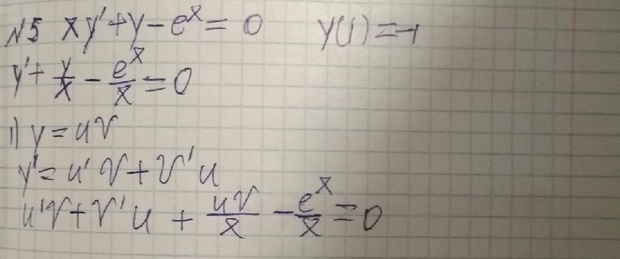 №5 xy' + y - e^x = 0 y(1) = -1
y' + y/x - e^x/x = 0
1) y = uv
y' = u'v + v'u
u'v + v'u + uv/x - e^x/x = 0